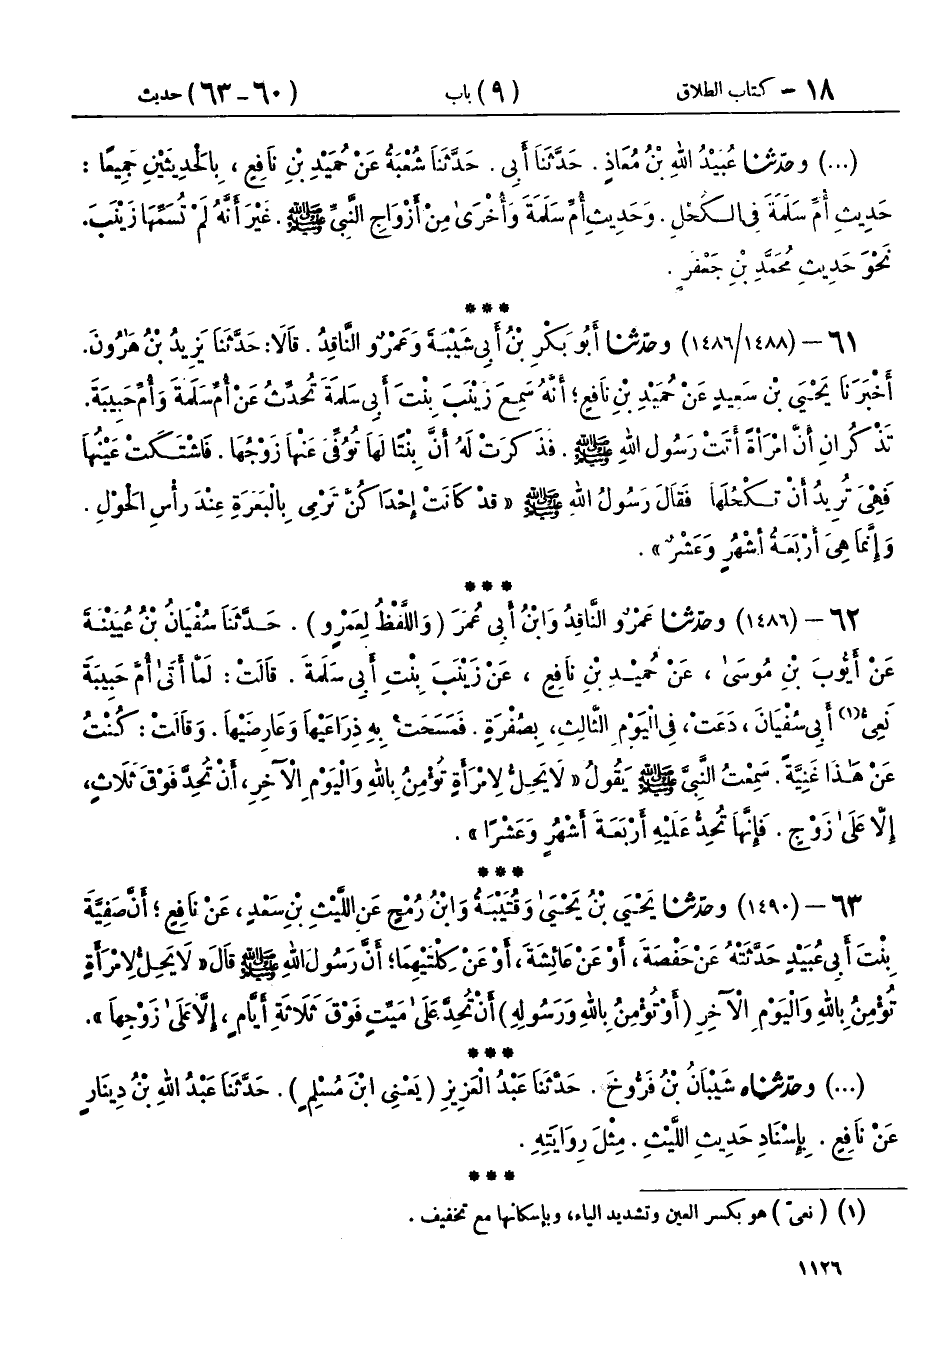 ١٨ - كتاب الطلاق (٩) باب (٦٠-٦٣) حديث
(...) وحدّثنا عُبَيْدُ اللهِ بْنُ مُعَاذٍ . حَدَّثَنَا أَبِي . حَدَّثَنَا شُعْبَةُ عَنْ حُمَيْدِ بْنِ نَافِعٍ ، بِالْحَدِيثَيْنِ جَمِيعًا :
حَدِيثِ أُمِّ سَلَمَةَ فِي الْكُحْلِ . وَحَدِيثِ أُمِّ سَلَمَةَ وَأُخْرَىٰ مِنْ أَزْوَاجِ النَّبِيِّ ﷺ . غَيْرَ أَنَّهُ لَمْ تُسَمِّهَا زَيْنَبَ.
نَحْوَ حَدِيثِ مُحَمَّدِ بْنِ جَعْفَرٍ .
***
٦١ - (١٤٨٦/١٤٨٨) وحدّثنا أَبُو بَكْرِ بْنُ أَبِي شَيْبَةَ وَعَمْرٌو النَّاقِدُ . قَالَا: حَدَّثَنَا يَزِيدُ بْنُ هَٰرُونَ.
أَخْبَرَنَا يَحْيَى بْنُ سَعِيدٍ عَنْ حُمَيْدِ بْنِ نَافِعٍ؛ أَنَّهُ سَمِعَ زَيْنَبَ بِنْتَ أَبِي سَلَمَةَ تُحَدِّثُ عَنْ أُمِّ سَلَمَةَ وَأُمِّ حَبِيبَةَ.
تَذْكُرَانِ أَنَّ امْرَأَةً أَتَتْ رَسُولَ اللهِ ﷺ . فَذَكَرَتْ لَهُ أَنَّ بِنْتًا لَهَا تُوُفِّيَ عَنْهَا زَوْجُهَا . فَاشْتَكَتْ عَيْنُهَا
فَهِيَ تُرِيدُ أَنْ تَكْحُلَهَا فَقَالَ رَسُولُ اللهِ ﷺ « قَدْ كَانَتْ إِحْدَاكُنَّ تَرْمِي بِالْبَعَرَةِ عِنْدَ رَأْسِ الْحَوْلِ .
وَإِنَّمَا هِيَ أَرْبَعَةُ أَشْهُرٍ وَعَشْرٌ » .
***
٦٢ - (١٤٨٦) وحدّثنا عَمْرٌو النَّاقِدُ وَابْنُ أَبِي عُمَرَ ( وَاللَّفْظُ لِعَمْرٍو ) . حَدَّثَنَا سُفْيَانُ بْنُ عُيَيْنَةَ
عَنْ أَيُّوبَ بْنِ مُوسَىٰ ، عَنْ حُمَيْدِ بْنِ نَافِعٍ ، عَنْ زَيْنَبَ بِنْتِ أَبِي سَلَمَةَ . قَالَتْ : لَمَّا أَتَىٰ أُمَّ حَبِيبَةَ
نَعِيُّ(١) أَبِي سُفْيَانَ ، دَعَتْ ، فِي الْيَوْمِ الثَّالِثِ، بِصُفْرَةٍ . فَمَسَحَتْ بِهِ ذِرَاعَيْهَا وَعَارِضَيْهَا . وَقَالَتْ : كُنْتُ
عَنْ هَٰذَا غَنِيَّةً . سَمِعْتُ النَّبِيَّ ﷺ يَقُولُ « لَا يَحِلُّ لِامْرَأَةٍ تُؤْمِنُ بِاللهِ وَالْيَوْمِ الْآخِرِ، أَنْ تُحِدَّ فَوْقَ ثَلَاثٍ،
إِلَّا عَلَىٰ زَوْجٍ . فَإِنَّهَا تُحِدُّ عَلَيْهِ أَرْبَعَةَ أَشْهُرٍ وَعَشْرًا » .
***
٦٣ - (١٤٩٠) وحدّثنا يَحْيَى بْنُ يَحْيَىٰ وَقُتَيْبَةُ وَابْنُ رُمْحٍ عَنِ اللَّيْثِ بْنِ سَعْدٍ، عَنْ نَافِعٍ ؛ أَنَّ صَفِيَّةَ
بِنْتَ أَبِي عُبَيْدٍ حَدَّثَتْهُ عَنْ حَفْصَةَ ، أَوْ عَنْ عَائِشَةَ ، أَوْ عَنْ كِلْتَيْهِمَا؛ أَنَّ رَسُولَ اللهِ ﷺ قَالَ « لَا يَحِلُّ لِامْرَأَةٍ
تُؤْمِنُ بِاللهِ وَالْيَوْمِ الْآخِرِ ( أَوْ تُؤْمِنُ بِاللهِ وَرَسُولِهِ ) أَنْ تُحِدَّ عَلَىٰ مَيِّتٍ فَوْقَ ثَلَاثَةِ أَيَّامٍ ، إِلَّا عَلَىٰ زَوْجِهَا ».
***
(...) وحدّثناه شَيْبَانُ بْنُ فَرُّوخَ . حَدَّثَنَا عَبْدُ الْعَزِيزِ ( يَعْنِي ابْنَ مُسْلِمٍ ) . حَدَّثَنَا عَبْدُ اللهِ بْنُ دِينَارٍ
عَنْ نَافِعٍ . بِإِسْنَادِ حَدِيثِ اللَّيْثِ . مِثْلَ رِوَايَتِهِ .
***
(١) ( نعيّ ) هو بكسر العين وتشديد الياء، وبإسكانها مع تخفيف .
١١٢٦